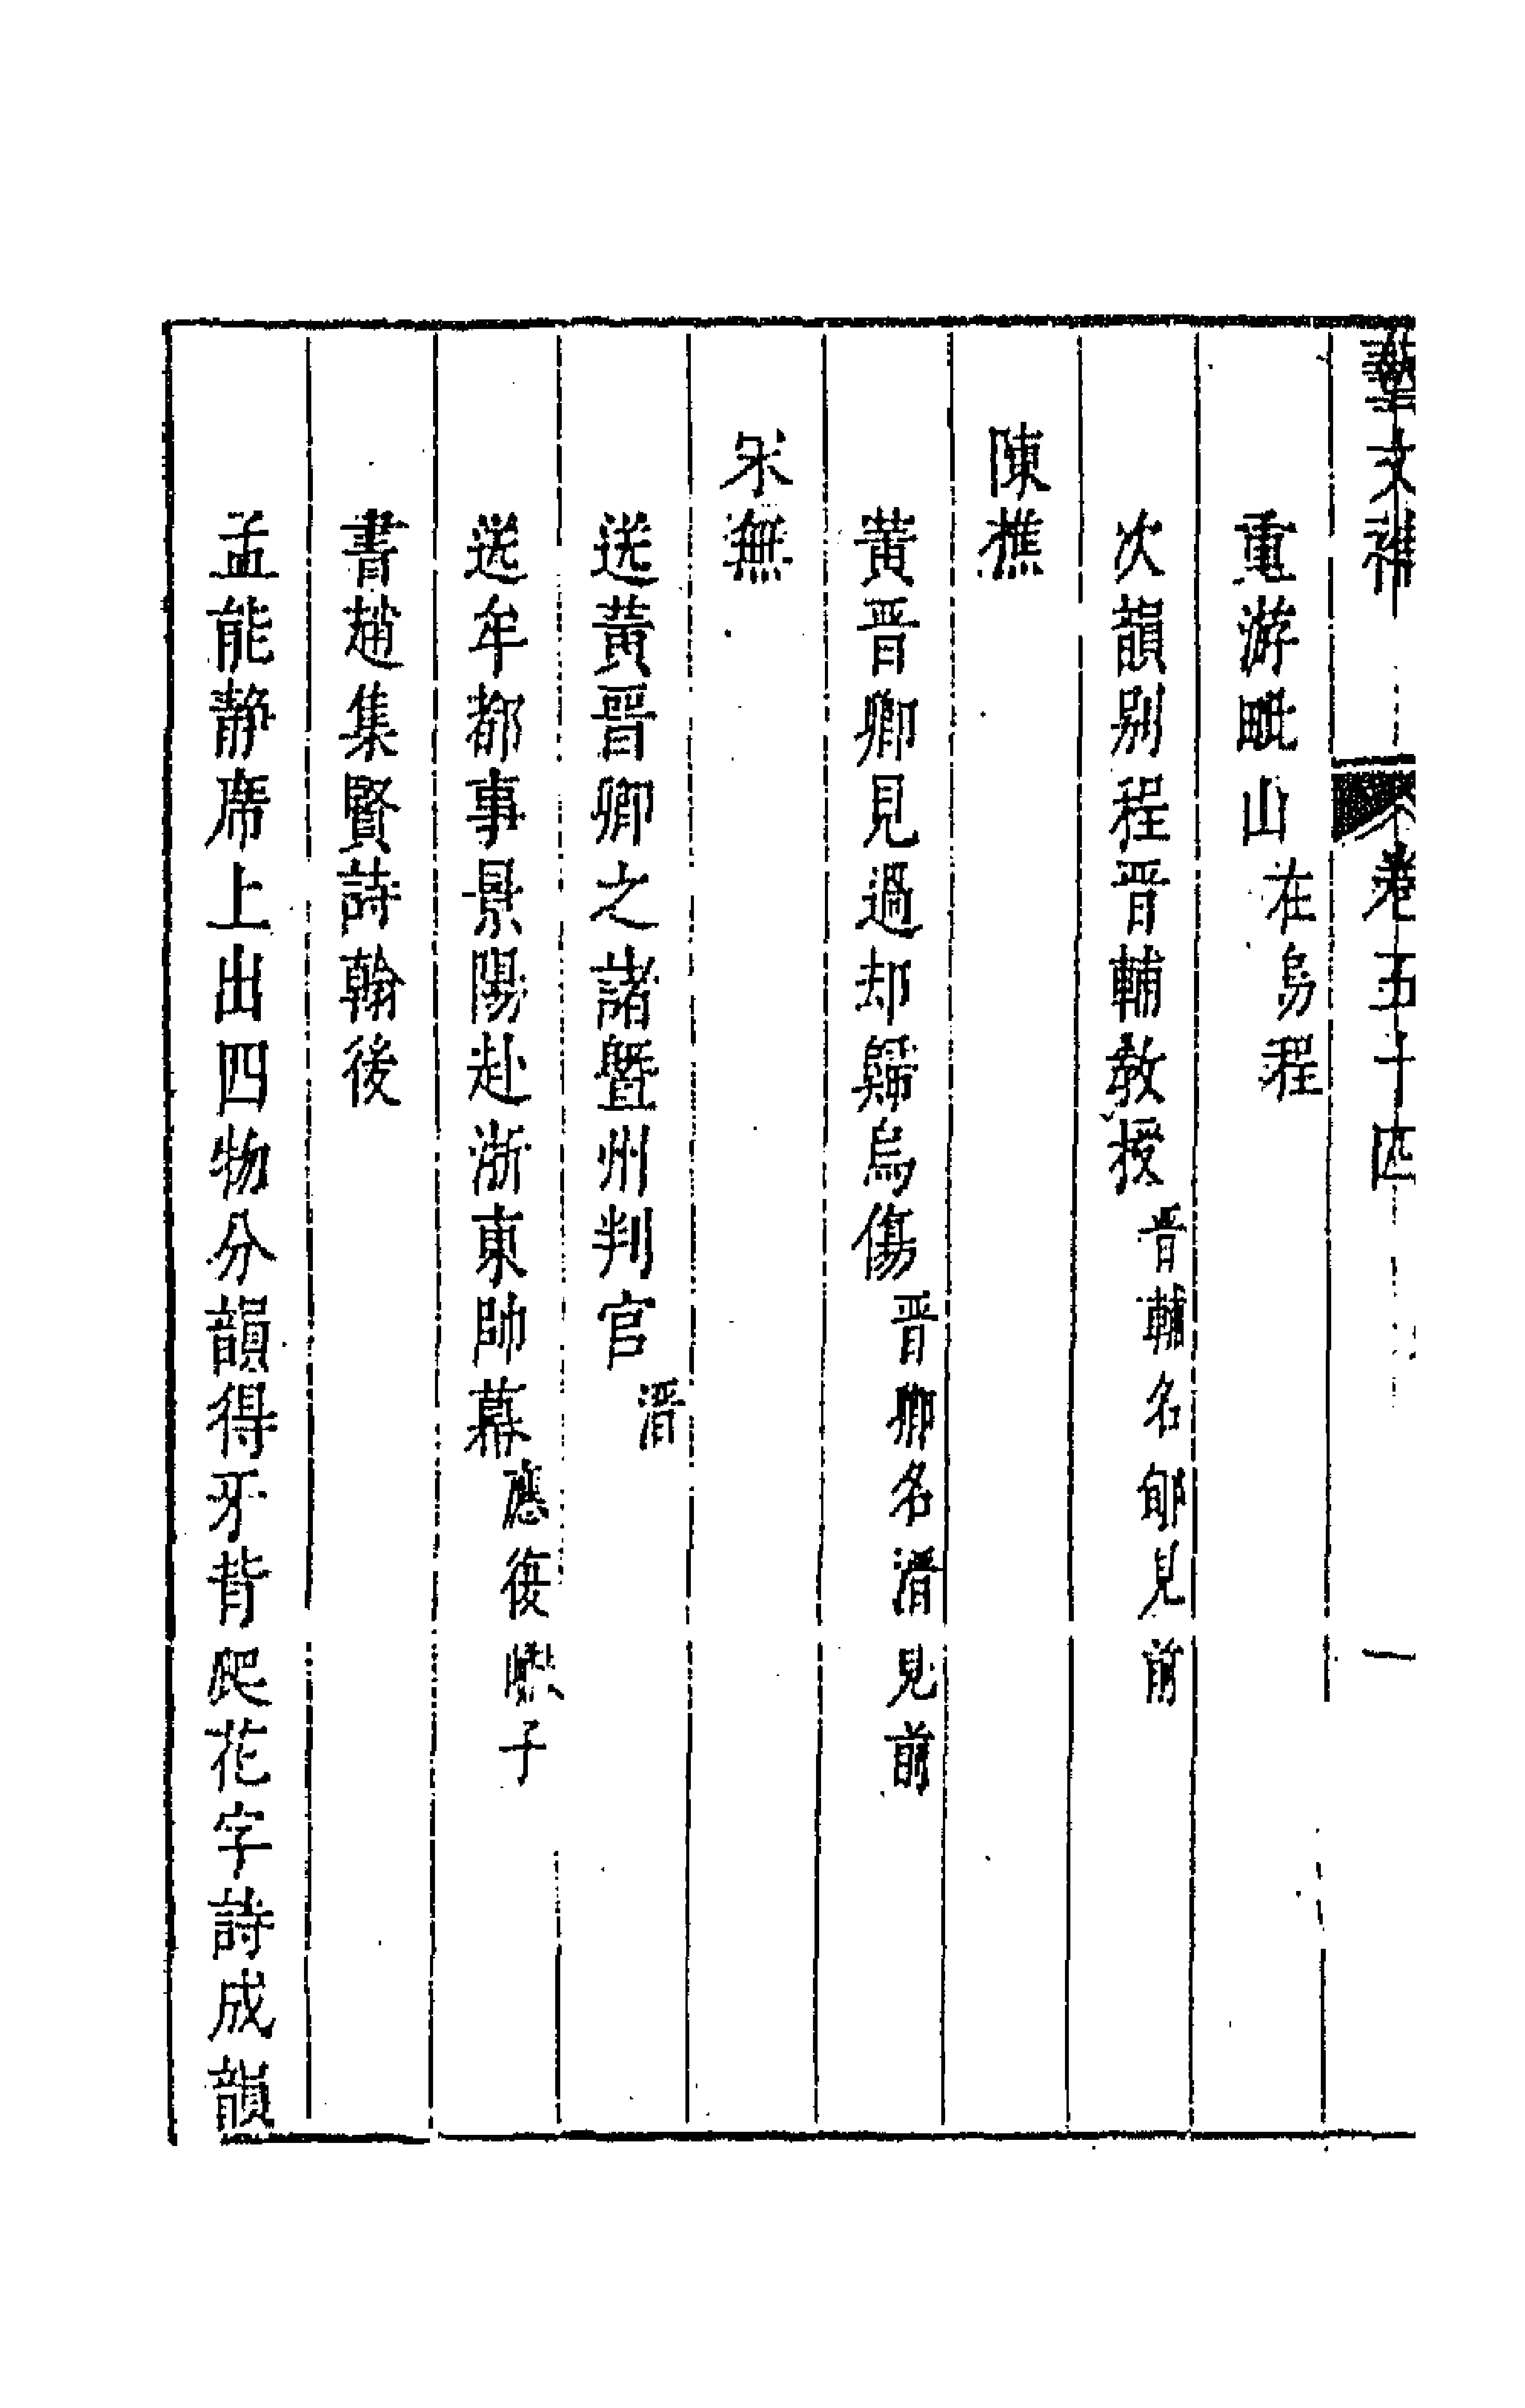 文補　卷五十四　一
重游毗山在烏程
次韻别程晋輔教授晋輔名郇見前
陳樵
黄晋卿見過却歸烏傷晋卿名溍見前
宋無
送黄晋卿之諸曁州判官溍
送牟都事景陽赴浙東帥幕應復巘子
書趙集賢詩翰後
孟能静席上出四物分韻得牙背爬花字詩成韻